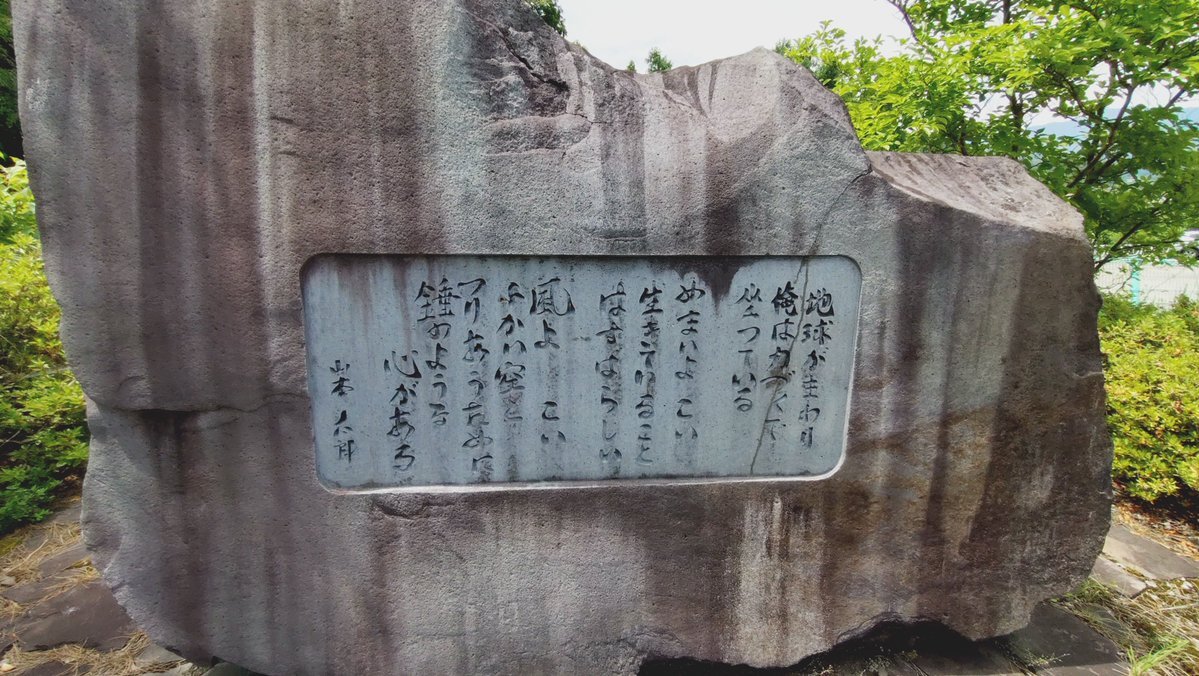 地球がまわり
俺は力づくで
坐つている
めまいよ こい
生きていること
はすばらしい
風よ こい
ふかい空と
つりあうために
錘のような
心がある
山本太郎